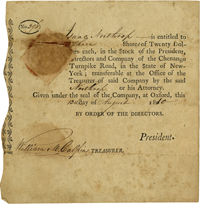 is entitled to
Shares of Twenty Dol-
lars each, in the Stock of the President,
Directors and Company of the Chenango
Turnpike Road, in the State of New-
York; transferable at the Office of the
Treasurer of said Company by the said
Northrop or his Attorney.
Given under the seal of the Company, at Oxford, this
Day of August
BY ORDER OF THE DIRECTORS.
President.
William M. TREASURER.